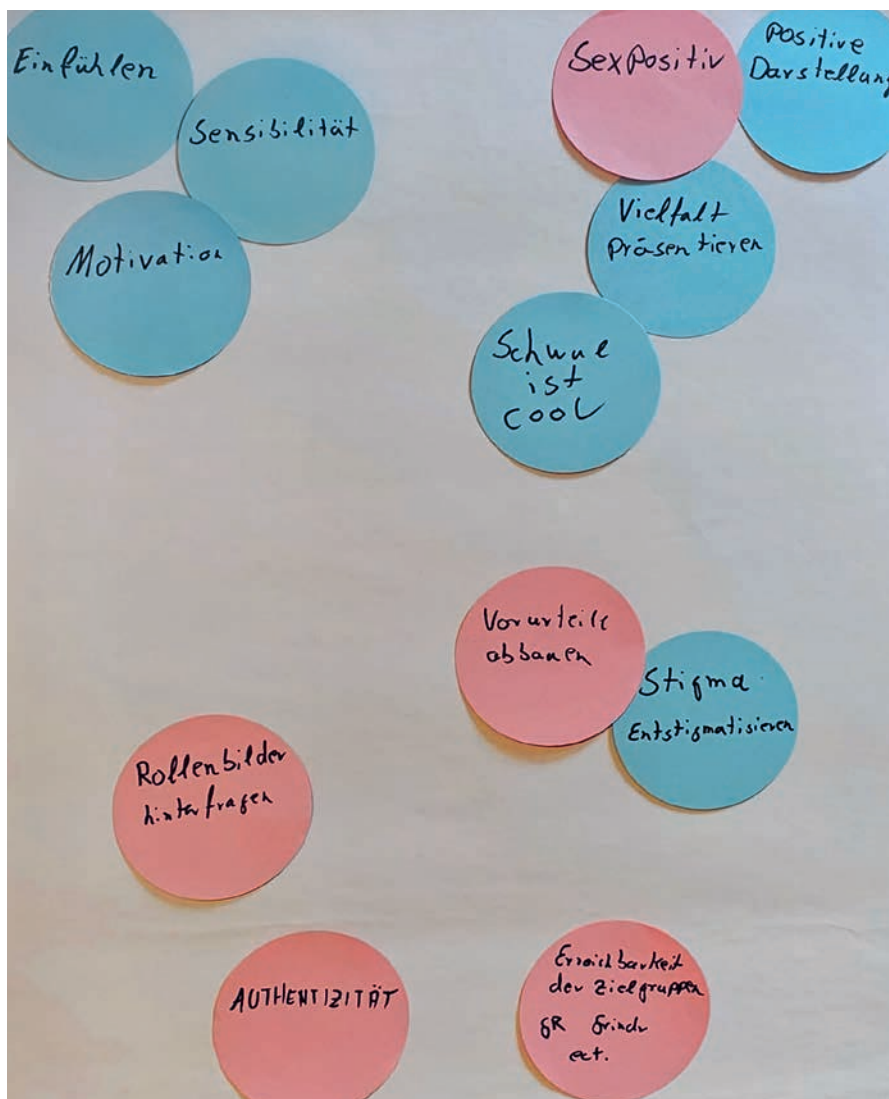 Einfühlen
Sensibilität
Motivation
SexPositiv
Positive
Darstellung
Vielfalt
Präsentieren
Schwul
ist
cool
Vorurteile
abbauen
Stigma
Entstigmatisieren
Rollenbilder
hinterfragen
AUTHENTIZITÄT
Erreichbarkeit
der Zielgruppen
GR Grindr
ect.